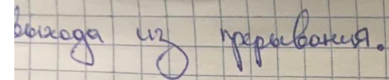 выхода из прерывания.